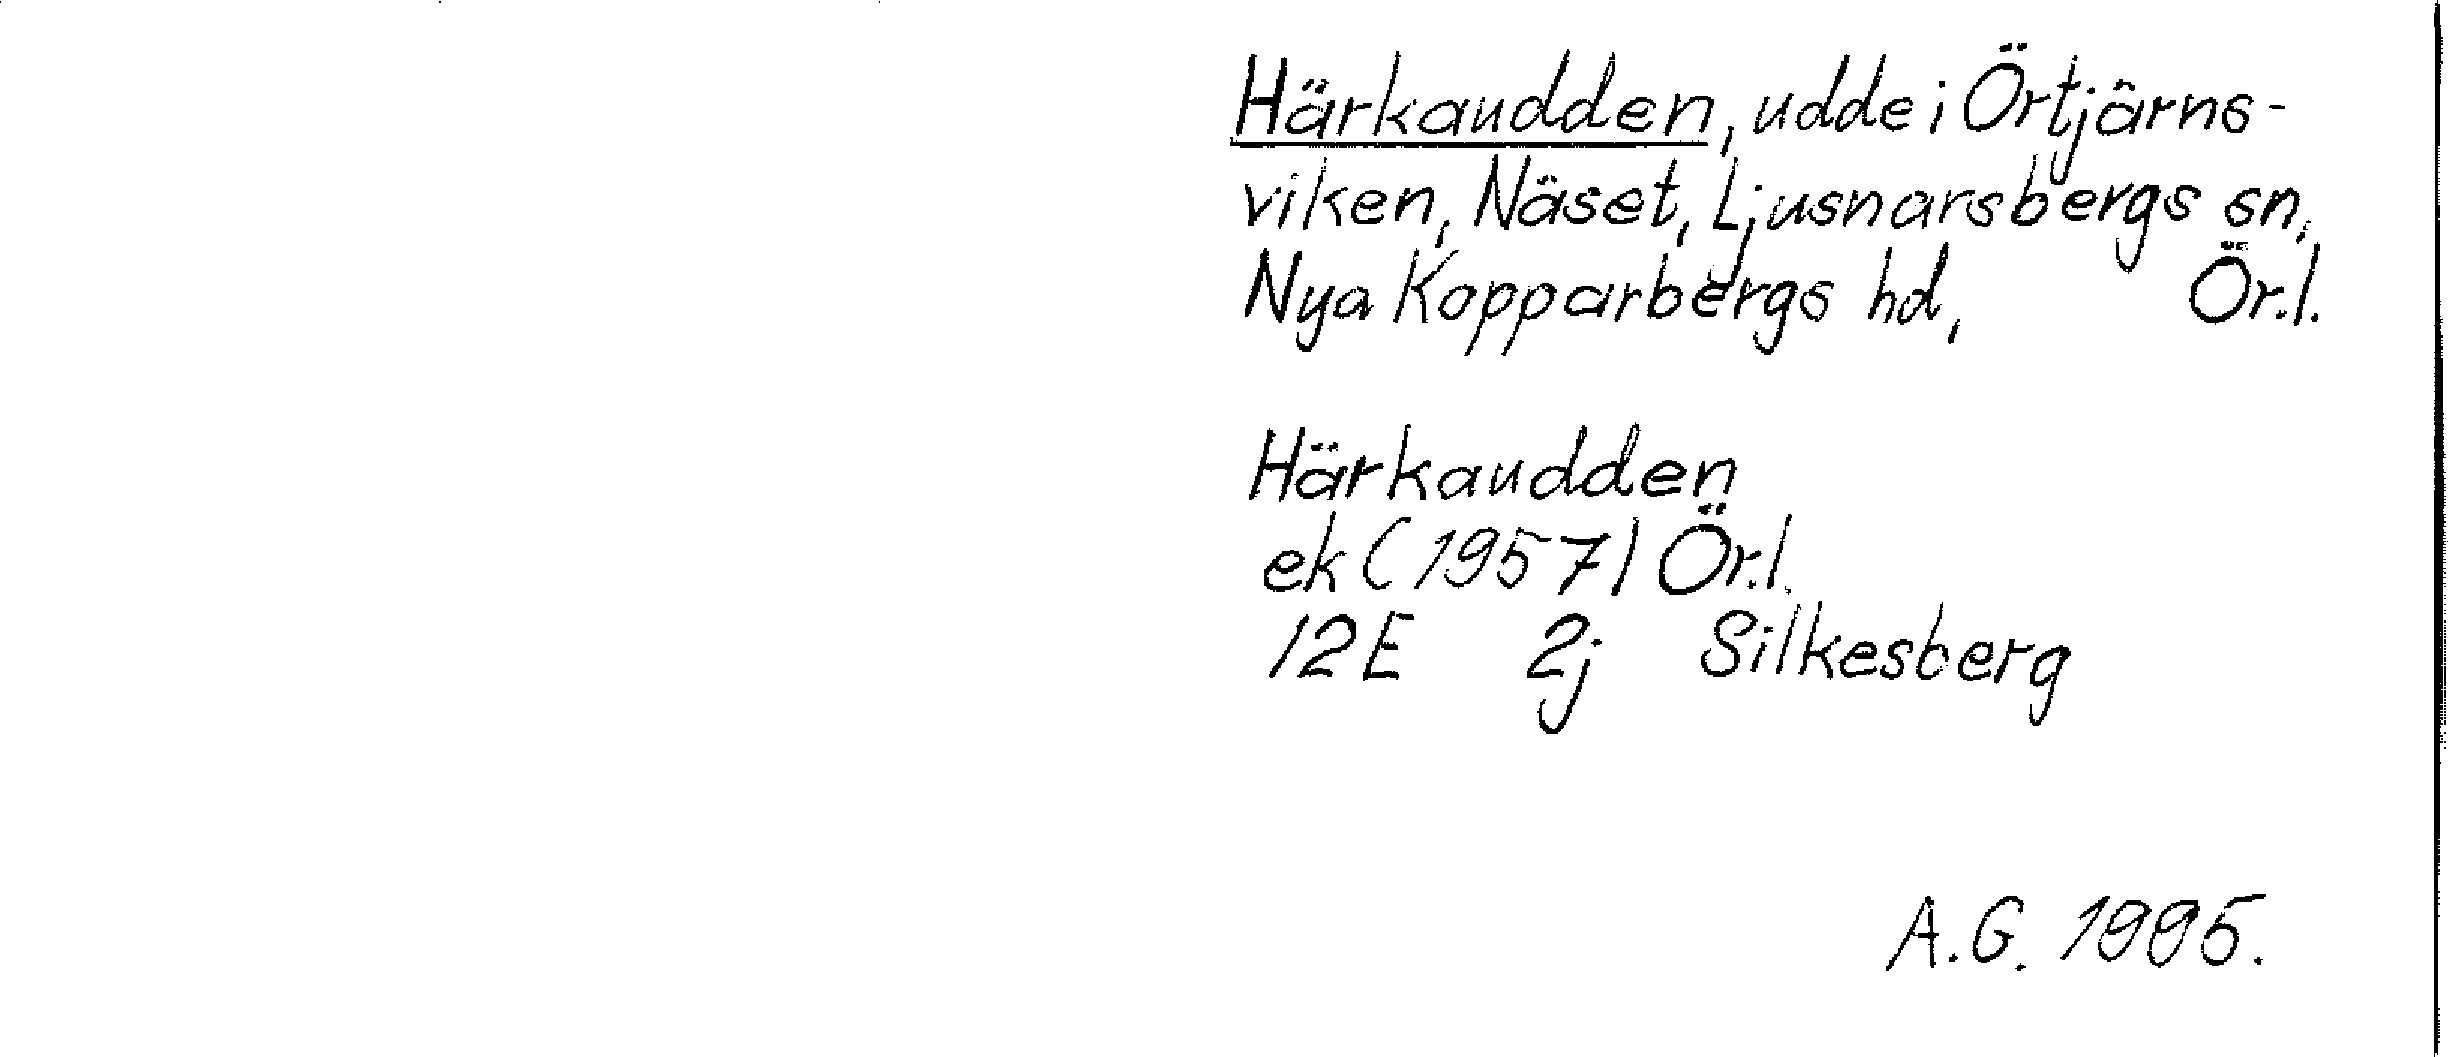 Härkaudden, udde i Örtjärns-
viken, Näset, Ljusnarsbergs sn,
Nya Kopparbergs hd, Ör.l.
Härkaudden
ek (1957) Ör.l.
12E 2j Silkesberg
A.G. 1995.